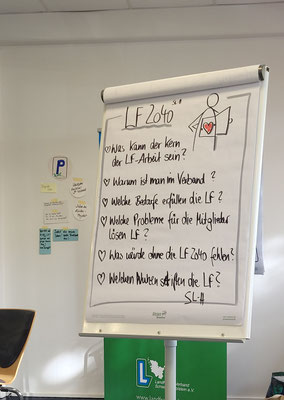 LF 2040
Was kann der Kern
der LF-Arbeit sein?
Warum ist man im Verband?
Welche Bedarfe erfüllen die LF?
Welche Probleme für die Mitglieder
lösen LF?
Was würde ohne die LF 2040 fehlen?
Welchen Nutzen stiften die LF?
P
L